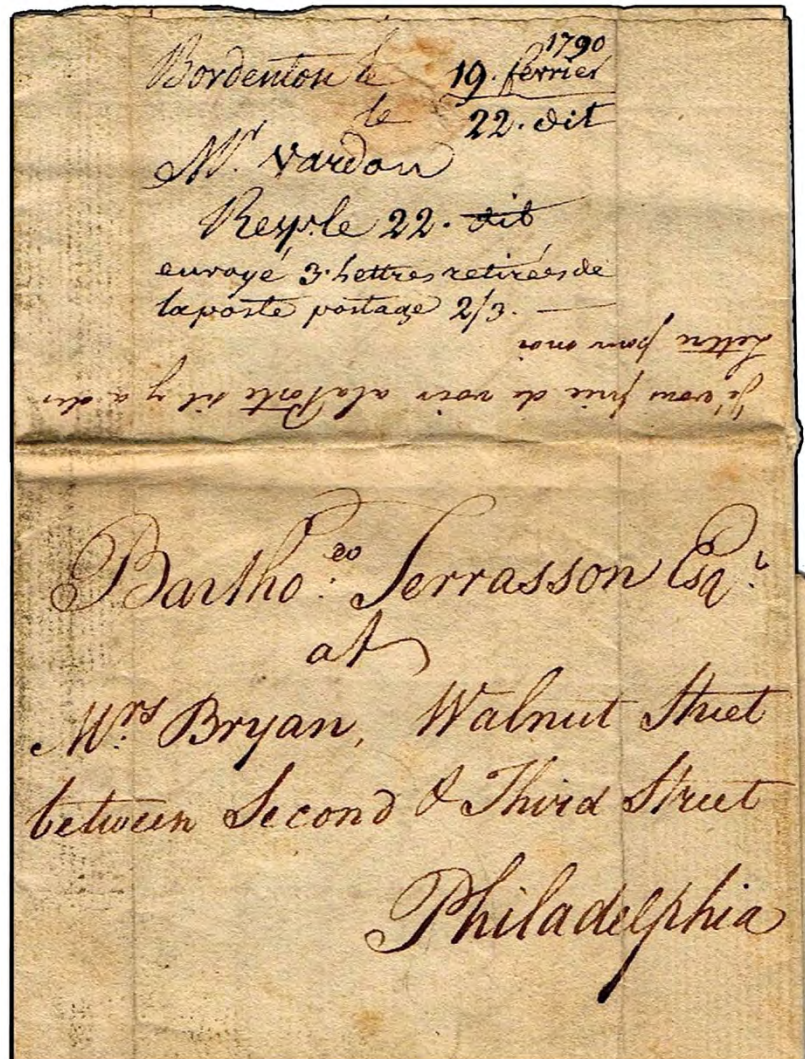 1790
Bordenton le 19. fevrier
le 22. dit
Mr. Vardon
Resp. le 22. dit
envoyé 3. lettres retirées de
la poste postage 2/3.
Je vous prie de voir a la Poste s'il y a des
Lettre pour moi
Bartho.eo Terrasson Esqr.
at
Mrs. Bryan, Walnut Street
between Second & Third Street
Philadelphia